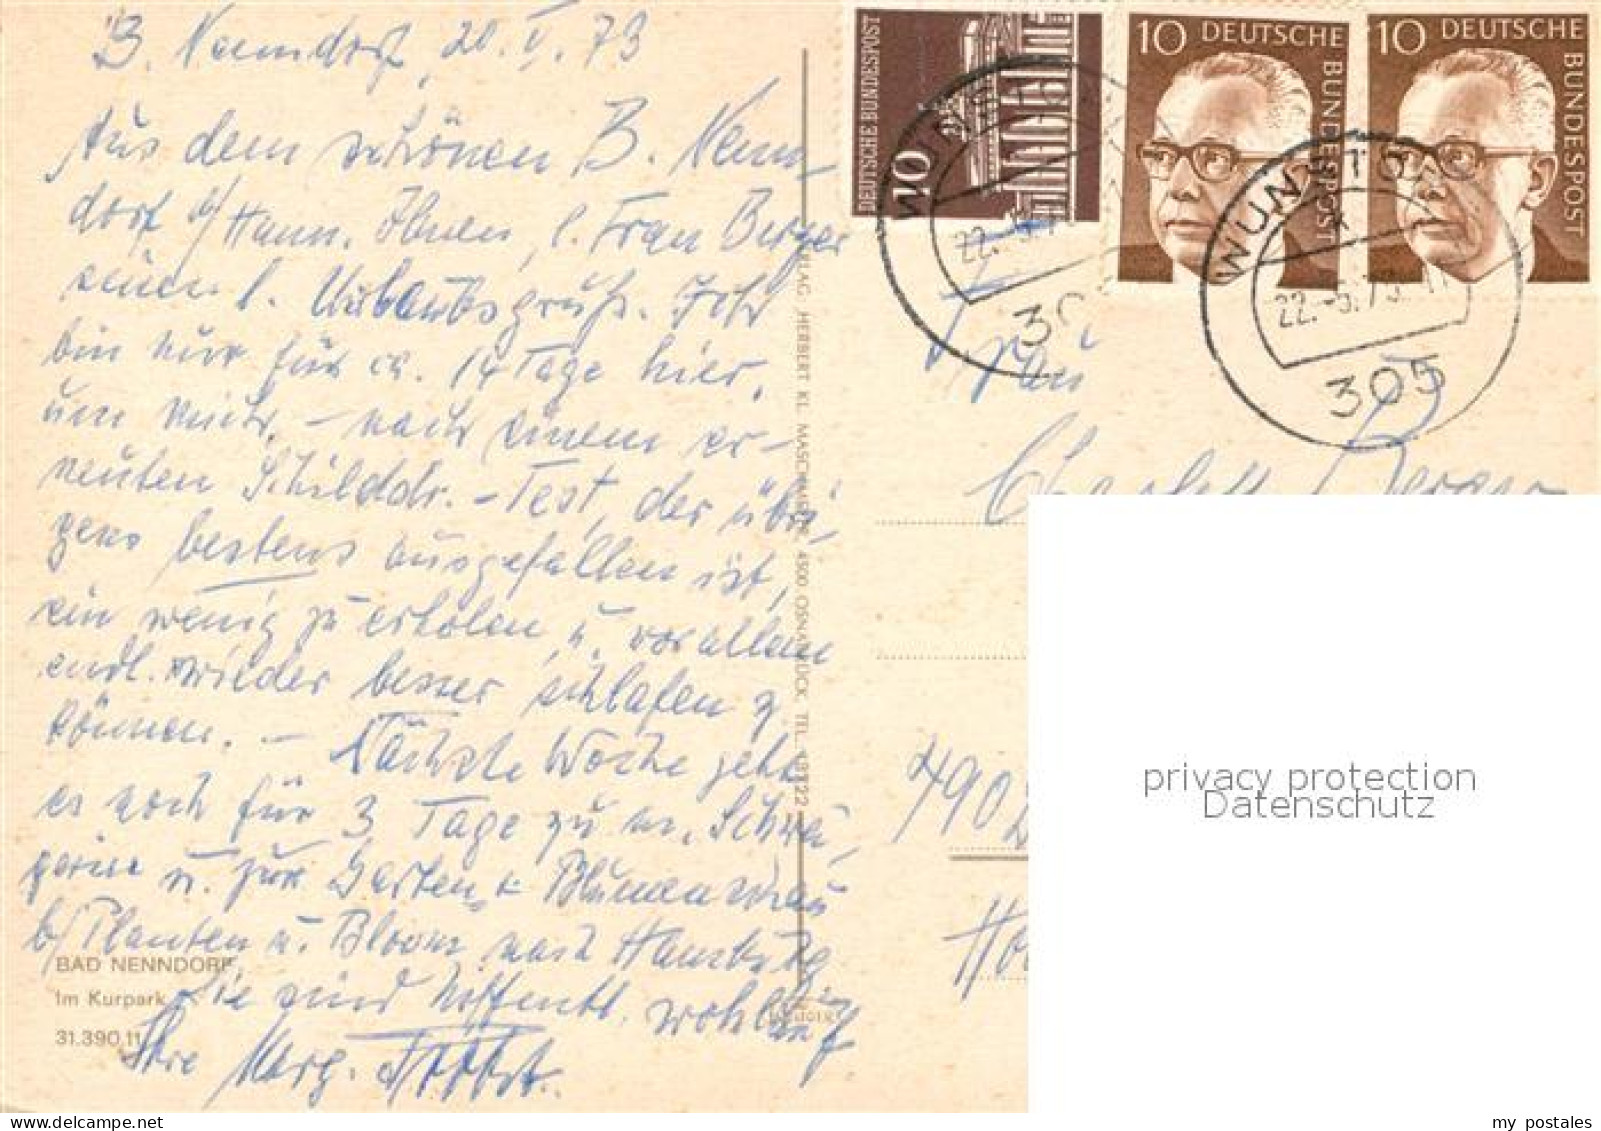 B. Nenndorf, 20. V. 73
Aus dem schönen B. Nenn-
dorf b/Hann. Ihnen, l. Frau Berger
einen l. Urlaubsgruß. Ich
bin nur für ca. 14 Tage hier,
um mich, - nach einem er-
neuten Schilddr. - Test, der übri-
gens bestens ausgefallen ist,
ein wenig zu erholen u. vor allem
endl. wieder besser schlafen z.
können. - Nächste Woche geht
es noch für 3 Tage zu m. Schwä-
gerin u. zur Garten- + Blumenschau
b/ Planten u. Bloom nach Hamburg
Sie sind hoffentl. wohlauf
Ihre Marg.
BAD NENNDORF
Im Kurpark
31.390.11
VERLAG HERBERT KL. MASCHMEYER 4500 OSNABRÜCK TEL.
DEUTSCHE BUNDESPOST
10
10 DEUTSCHE BUNDESPOST
10 DEUTSCHE BUNDESPOST
WUNSTORF
22.-5.73
305
WUNSTORF
22.-5.73-11
305
Frau
Berger
490
privacy protection
Datenschutz
my postales
www.delcampe.net